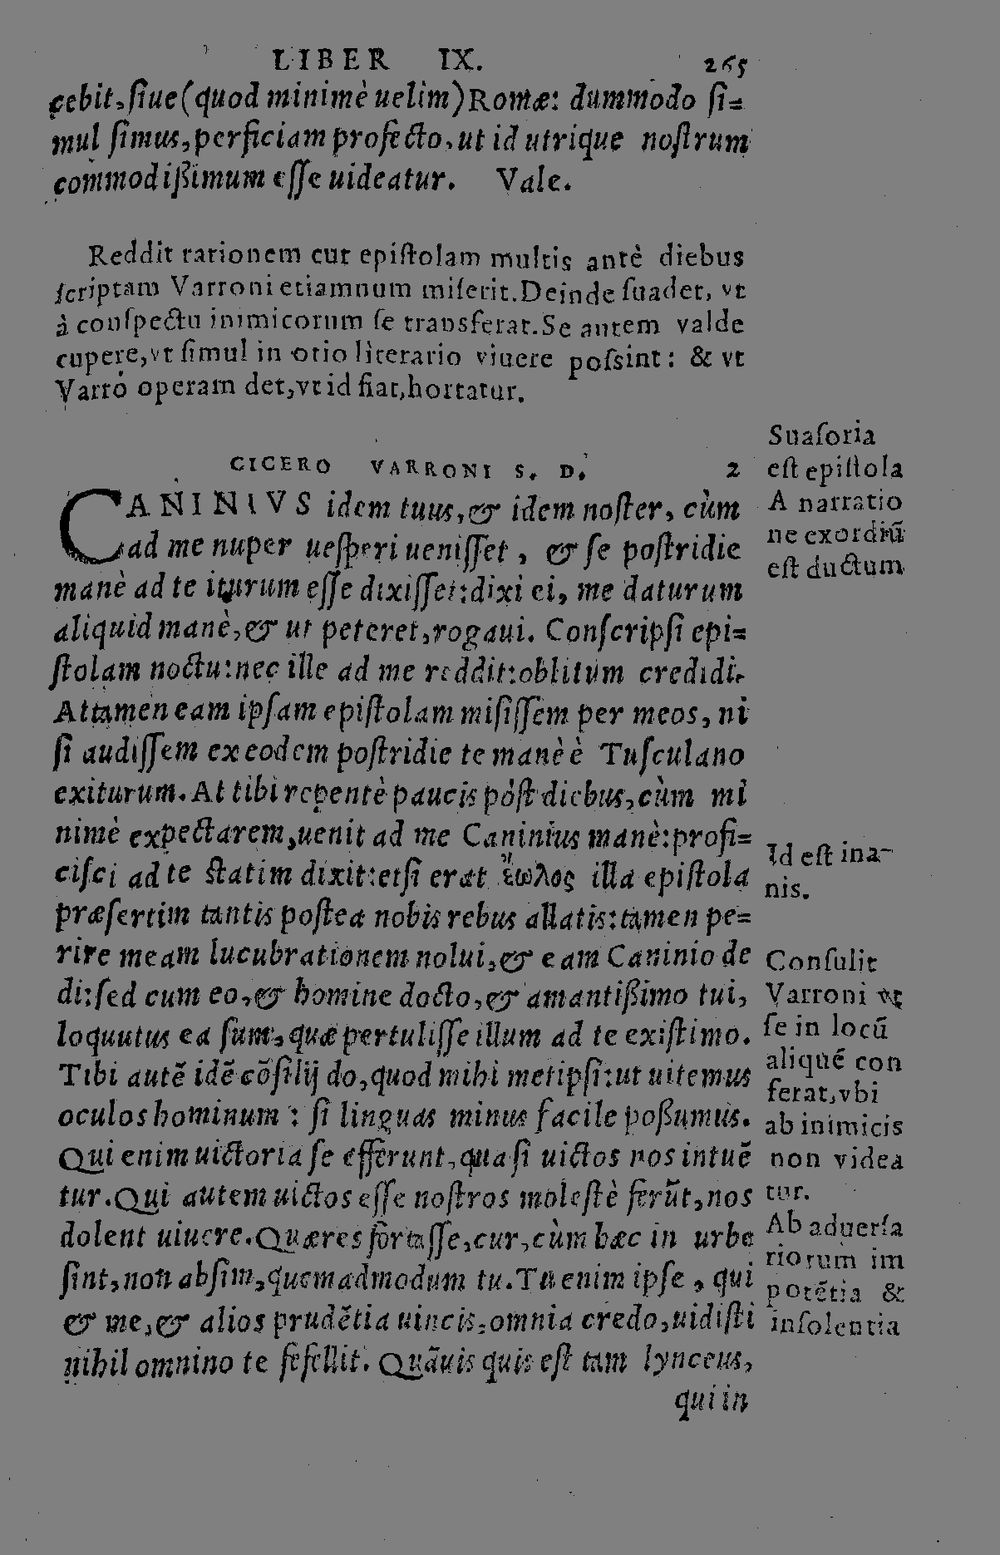 LIBER IX. 265
cebit, siue (quod minimè uelim) Romæ: dummodo si=
mul simus, perficiam profecto, ut id utrique nostrum
commodißimum esse uideatur. Vale.
Reddit rationem cur epistolam multis antè diebus
scriptam Varroni etiamnum miserit. Deinde suadet, vt
à conspectu inimicorum se transferat. Se autem valde
cupere, vt simul in otio literario viuere possint: & vt
Varro operam det, vt id fiat, hortatur.
CICERO VARRONI S. D. 2
CANINIVS idem tuus, & idem noster, cùm
ad me nuper uesperi uenisset, & se postridie
manè ad te iturum esse dixisset: dixi ei, me daturum
aliquid manè, & ut peteret, rogaui. Conscripsi epi=
stolam noctu: nec ille ad me reddit: oblitum credidi.
Attamen eam ipsam epistolam misissem per meos, ni
si audissem ex eodem postridie te manè è Tusculano
exiturum. At tibi repentè paucis pòst diebus, cùm mi
nimè expectarem, uenit ad me Caninius manè: profi=
cisci ad te statim dixit: etsi erat ἕωλος illa epistola
præsertim tantis postea nobis rebus allatis: tamen pe=
rire meam lucubrationem nolui, & eam Caninio de
di: sed cum eo, & homine docto, & amantißimo tui,
loquutus ea sum, quæ pertulisse illum ad te existimo.
Tibi autē idē cōsilij do, quod mihi metipsi: ut uitemus
oculos hominum: si linguas minus facile poßumus.
Qui enim uictoria se efferunt, quasi uictos nos intuē
tur. Qui autem uictos esse nostros molestè ferūt, nos
dolent uiuere. Quæres fortasse, cur, cùm hæc in urbe
sint, non absim, quemadmodum tu. Tu enim ipse, qui
& me, & alios prudētia uincis, omnia credo, uidisti
nihil omnino te fefellit. Quāuis quis est tam lynceus,
qui in
Suasoria
est epistola
A narratio
ne exordiū
est ductum
Id est ina-
nis.
Consulit
Varroni vt
se in locū
aliquē con
ferat, vbi
ab inimicis
non videa
tur.
Ab aduersa
riorum im
potētia &
insolentia